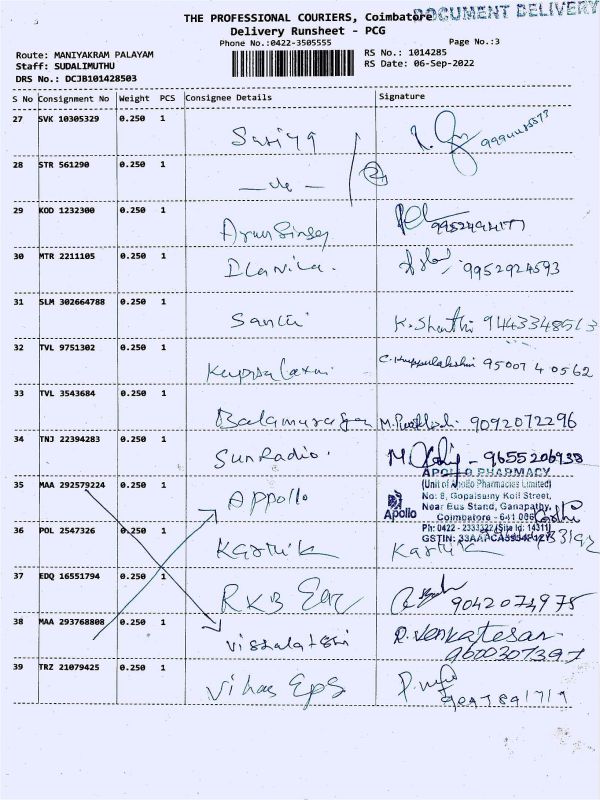 DOCUMENT DELIVERY
THE PROFESSIONAL COURIERS, Coimbatore
Delivery Runsheet - PCG
Phone No.:0422-3505555
Page No.:3
Route: MANIYAKRAM PALAYAM
Staff: SUDALIMUTHU
DRS No.: DCJB101428503
RS No.: 1014285
RS Date: 06-Sep-2022
S No Consignment No Weight PCS Consignee Details Signature
27 SVK 10305329 0.250 1
28 STR 561290 0.250 1
29 KOD 1232300 0.250 1
30 MTR 2211105 0.250 1 9952924593
31 SLM 302664788 0.250 1 K. Shanthi 9443348513
32 TVL 9751302 0.250 1 C. Kuppulakshmi 9500740562
33 TVL 3543684 0.250 1 Balamurugan 9092072296
34 TNJ 22394283 0.250 1 Sun Radio. 9655206938
35 MAA 292579224 0.250 1 Appollo
APOLLO PHARMACY
(Unit of Apollo Pharmacies Limited)
No: 8, Gopalsuny Koil Street,
Near Bus Stand, Ganapathy,
Coimbatore - 641 006
Ph: 0422 - 2333322 (Site Id: 14311)
Apollo
36 POL 2547326 0.250 1 Karthik Karthik
37 EDQ 16551794 0.250 1 RKB 9042074975
38 MAA 293768808 0.250 1 Visalatshi R. Venkatesan
9600307397
39 TRZ 21079425 0.250 1 Vihas Eps